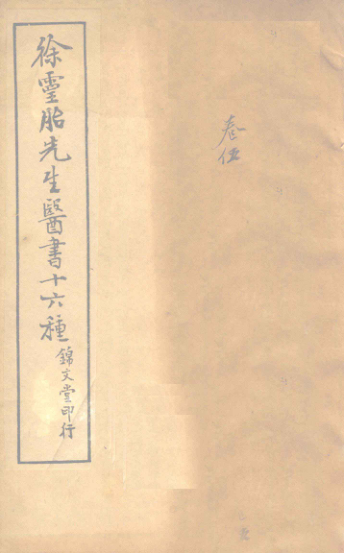 卷伍
徐靈胎先生醫書十六種
錦文堂印行